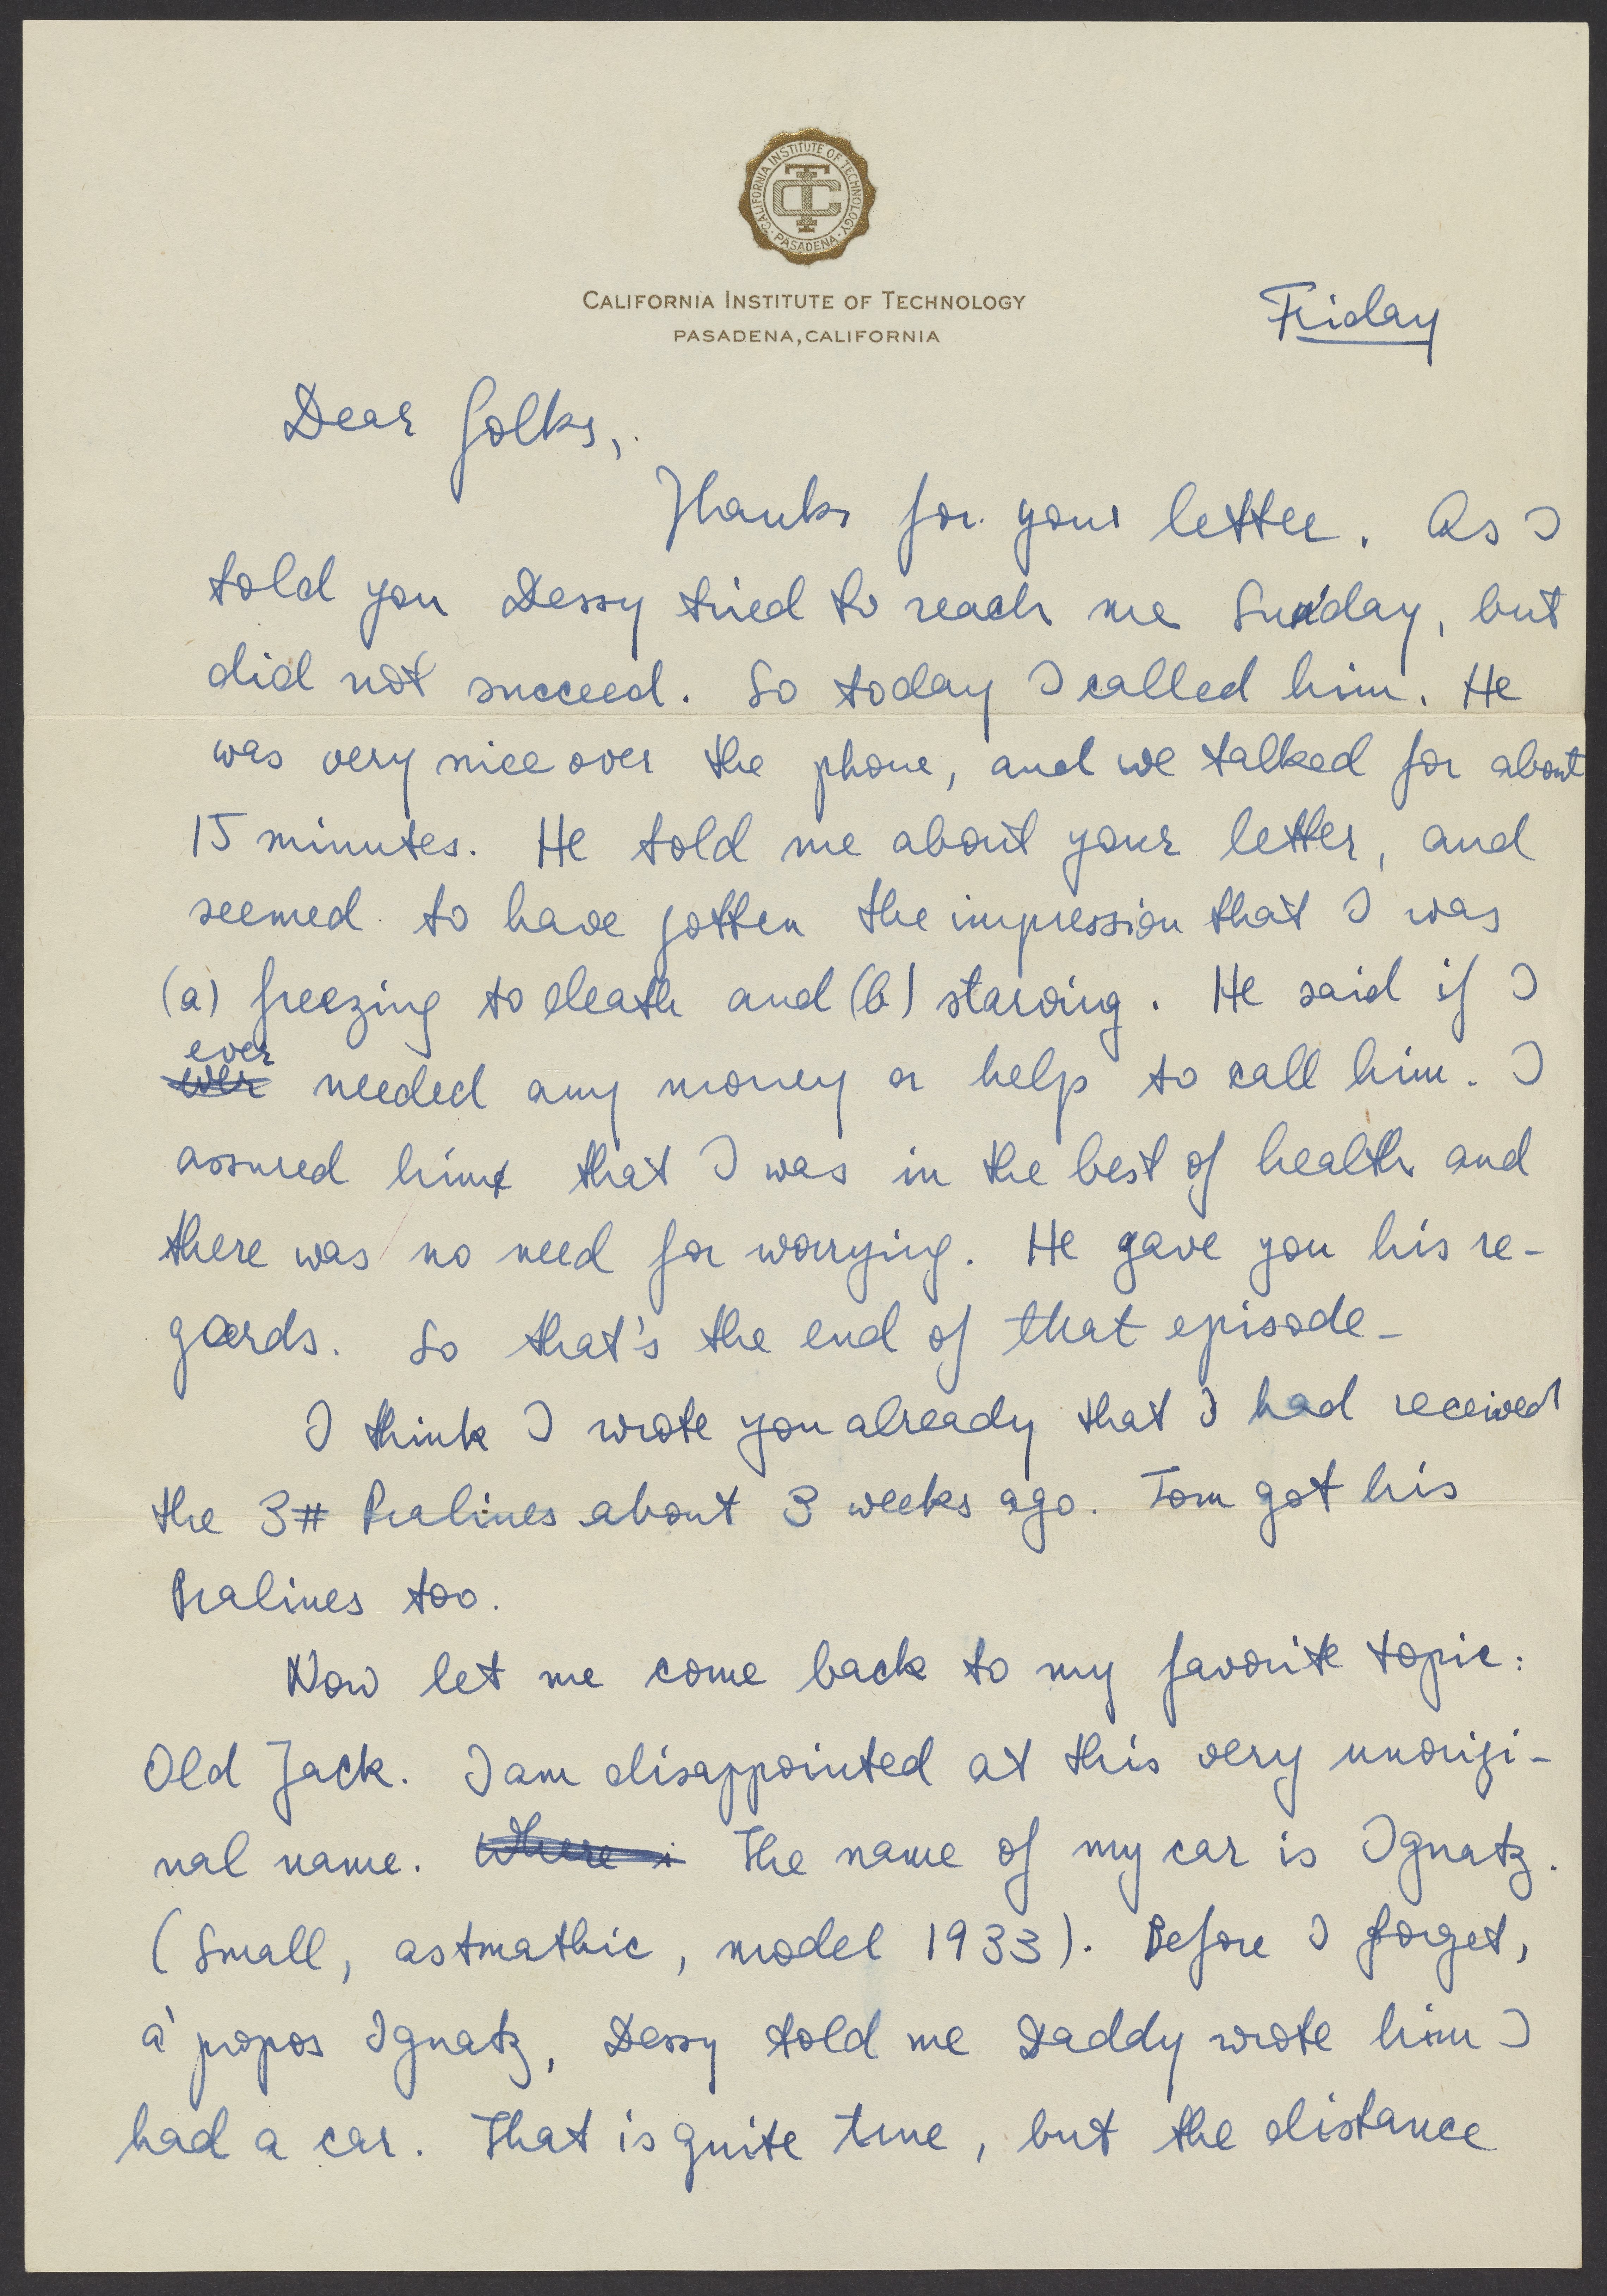 CALIFORNIA INSTITUTE OF TECHNOLOGY
PASADENA
CALIFORNIA INSTITUTE OF TECHNOLOGY
PASADENA, CALIFORNIA
Friday
Dear folks,
Thanks for your letter. As I
told you Dessy tried to reach me Sunday, but
did not succeed. So today I called him. He
was very nice over the phone, and we talked for about
15 minutes. He told me about your letter, and
seemed to have gotten the impression that I was
(a) freezing to death and (b) starving. He said if I
ever
needed any money or help to call him. I
assured him that I was in the best of health and
there was no need for worrying. He gave you his re-
gards. So that's the end of that episode-
I think I wrote you already that I had received
the 3# Pralines about 3 weeks ago. Tom got his
Pralines too.
Now let me come back to my favorite topic:
Old Jack. I am disappointed at this very unorigi-
nal name. Where i The name of my car is Ignatz.
(Small, astmathic, model 1933). Before I forget,
a' propos Ignatz, Dessy told me Daddy wrote him I
had a car. That is quite true, but the distance